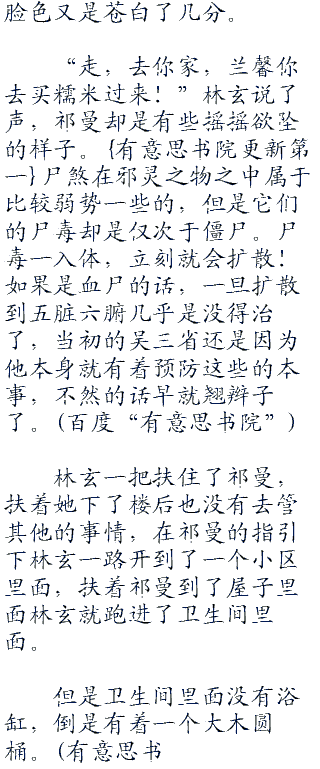 脸色又是苍白了几分。
“走，去你家，兰馨你
去买糯米过来！”林玄说了
声，祁曼却是有些摇摇欲坠
的样子。{有意思书院更新第
一}尸煞在邪灵之物之中属于
比较弱势一些的，但是它们
的尸毒却是仅次于僵尸。尸
毒一入体，立刻就会扩散！
如果是血尸的话，一旦扩散
到五脏六腑几乎是没得治
了，当初的吴三省还是因为
他本身就有着预防这些的本
事，不然的话早就翘辫子
了。(百度“有意思书院”)
林玄一把扶住了祁曼，
扶着她下了楼后也没有去管
其他的事情，在祁曼的指引
下林玄一路开到了一个小区
里面，扶着祁曼到了屋子里
面林玄就跑进了卫生间里
面。
但是卫生间里面没有浴
缸，倒是有着一个大木圆
桶。(有意思书